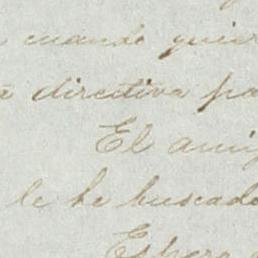 cuando quier
directiva pa
El ami
le he buscado
Espero